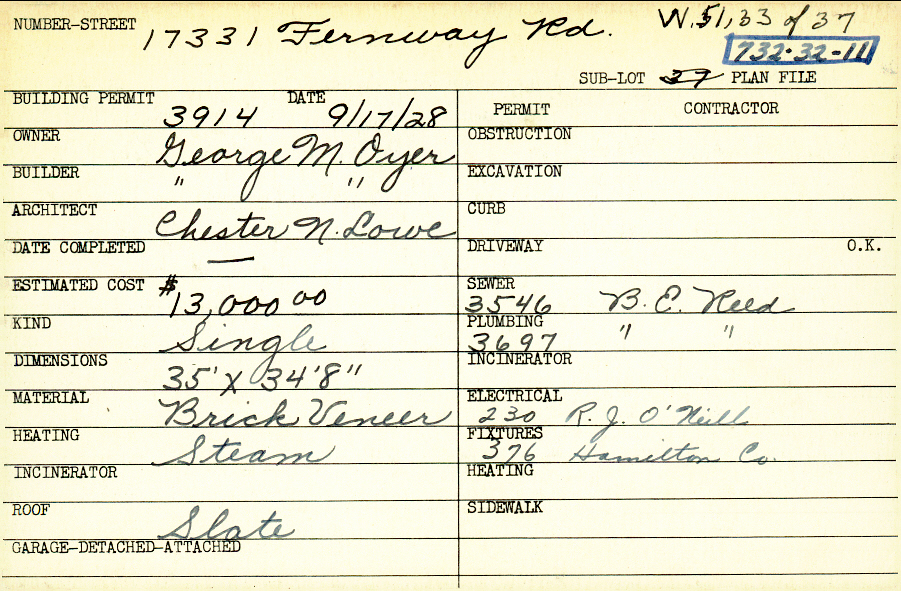 NUMBER-STREET 17331 Fernway Rd. W.51,33 of 37
732-32-11
SUB-LOT 37 PLAN FILE
BUILDING PERMIT 3914 DATE 9/17/28
PERMIT CONTRACTOR
OWNER George M. Oyer
OBSTRUCTION
BUILDER " "
EXCAVATION
ARCHITECT Chester N. Lowe
CURB
DATE COMPLETED —
DRIVEWAY O.K.
ESTIMATED COST $13,000 00
SEWER 3546 B. E. Reed
KIND Single
PLUMBING 3697 " "
DIMENSIONS 35' X 34'8"
INCINERATOR
MATERIAL Brick Veneer
ELECTRICAL 230 R. J. O'Neill
HEATING Steam
FIXTURES 376 Hamilton Co.
INCINERATOR
HEATING
ROOF Slate
SIDEWALK
GARAGE-DETACHED-ATTACHED